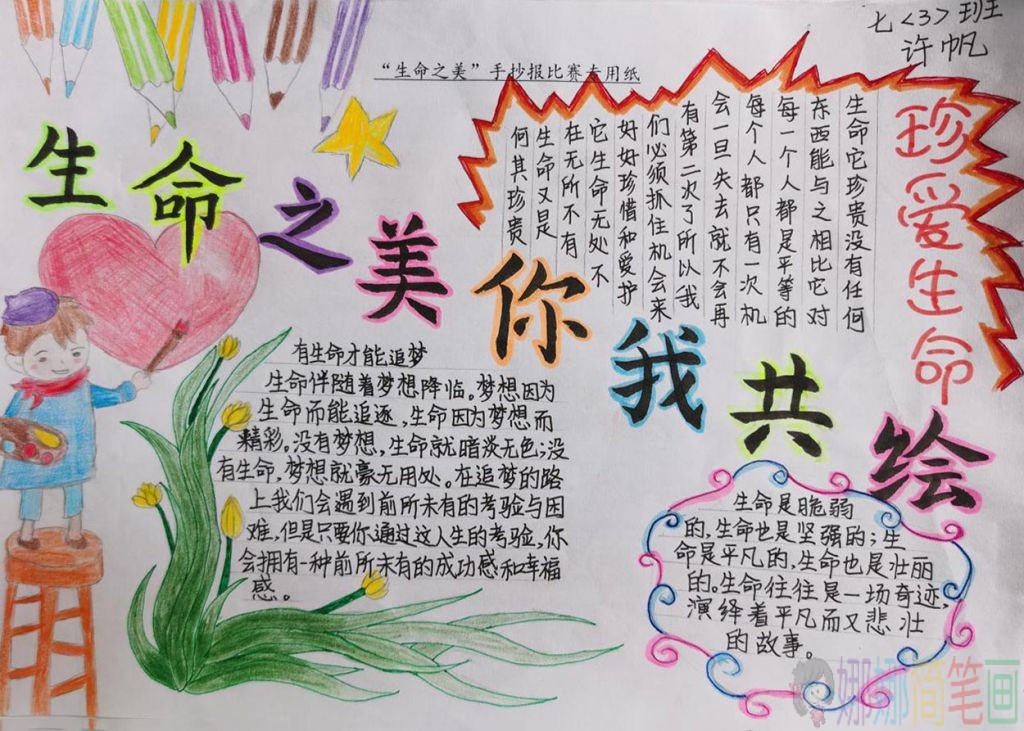 七<3>班
许帆
“生命之美”手抄报比赛专用纸
生命之美你我共绘
珍爱生命
生命它珍贵没有任何
东西能与之相比它对
每一个人都是平等的
每个人都只有一次机
会一旦失去就不会再
有第二次了所以我
们必须抓住机会来
好好珍惜和爱护
它生命无处不
在无所不有
生命又是
何其珍贵
有生命才能追梦
生命伴随着梦想降临。梦想因为
生命而能追逐,生命因为梦想而
精彩。没有梦想,生命就暗淡无色;没
有生命,梦想就豪无用处。在追梦的路
上我们会遇到前所未有的考验与困
难,但是只要你通过这人生的考验,你
会拥有一种前所未有的成功感和幸福
感。
生命是脆弱
的,生命也是坚强的;生
命是平凡的,生命也是壮丽
的。生命往往是一场奇迹,
演绎着平凡而又悲壮
的故事。
娜娜简笔画